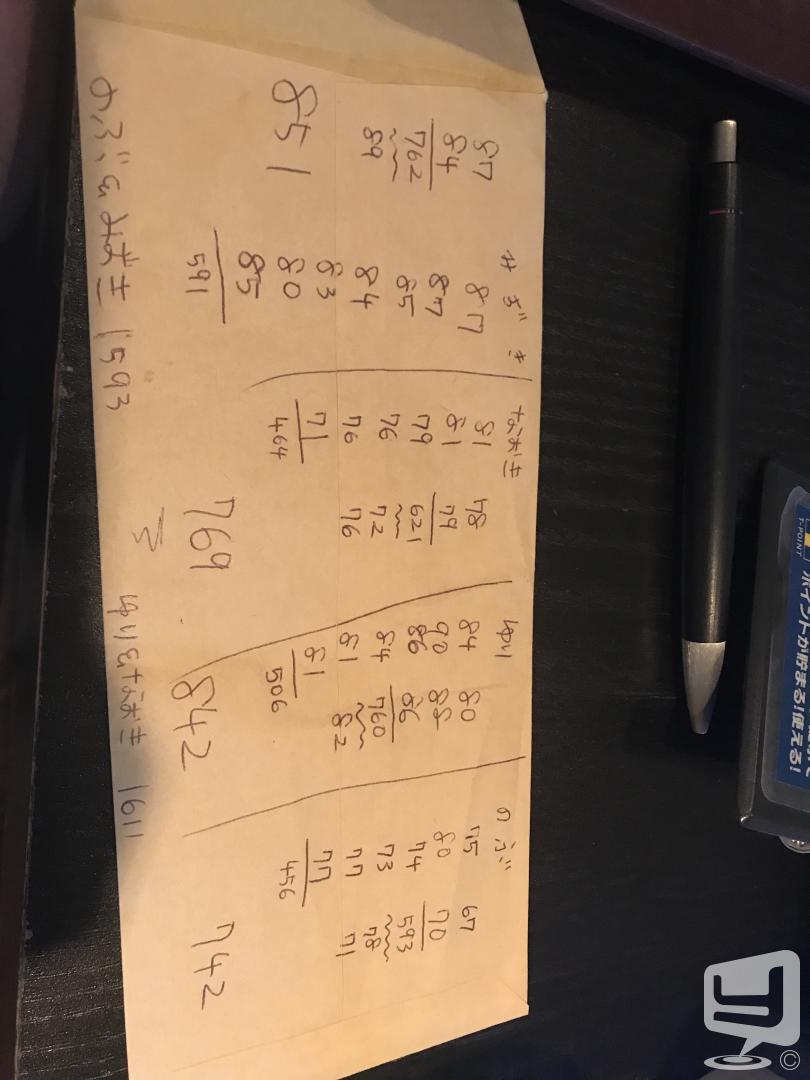 みずき
87
87
85
84
83
80
85
591
87
84
762
89
851
なおき
81
81
79
76
76
71
464
78
79
621
72
76
769
ゆり
84
90
86
84
81
81
506
80
88
86
760
82
842
のぶ
75
80
74
73
77
77
456
67
70
593
78
71
742
のぶ&みずき 1593
ゆり&なおき 1611
T-POINT
ポイントが貯まる!使える!
©